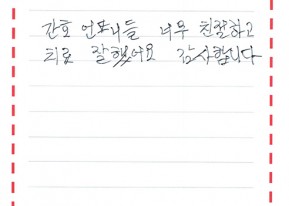 간호 언니들 너무 친절하고
치료 잘했어요 감사합니다